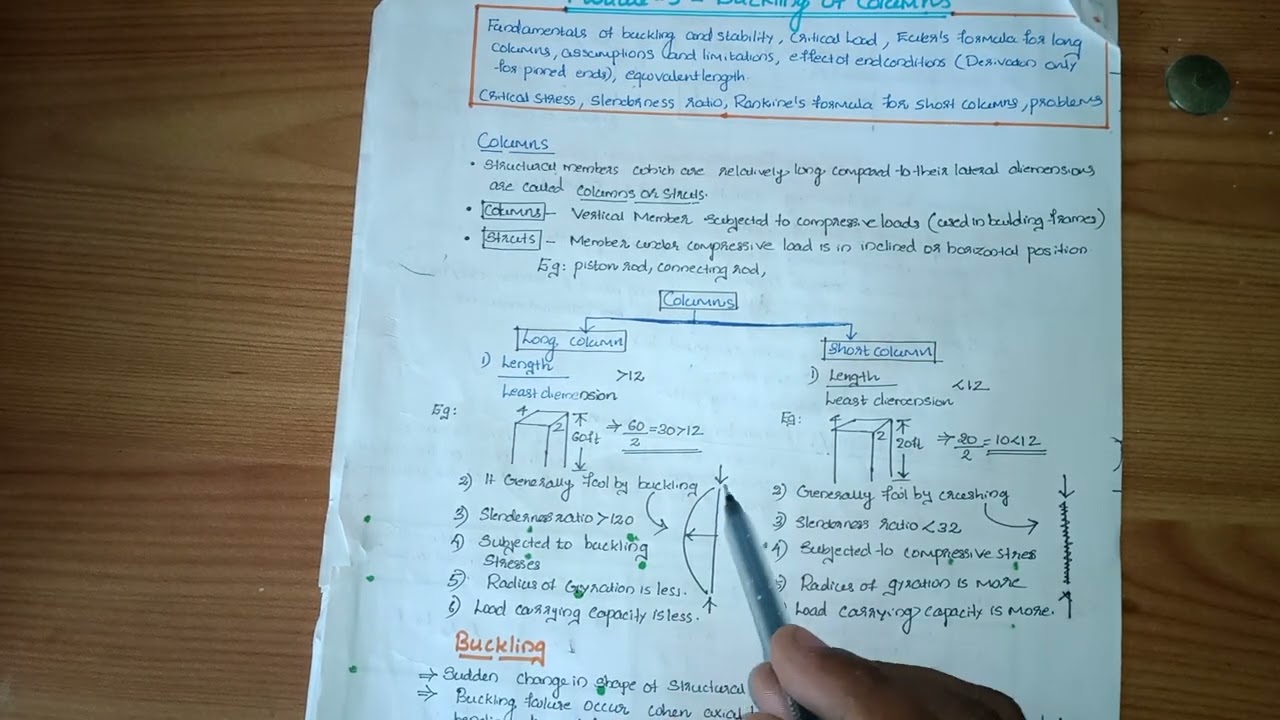 Buckling of Columns
Fundamentals of buckling and stability, critical load, Euler's formula for long
columns, assumptions and limitations, effect of end conditions (Derivation only
for pinned ends), equivalent length.
Critical stress, slenderness ratio, Rankine's formula for short columns, problems
Columns
• Structural members which are relatively long compared to their lateral diemensions
are called columns or struts.
• Columns - Vertical Member subjected to compressive loads (used in building frames)
• Struts - Member under compressive load is in inclined or horizontal position
Eg: piston rod, connecting rod,
Columns
Long column
1) Length
Least diemension
>12
Eg: 4 2 60ft ⇒ 60/2 = 30>12
2) It Generally fail by buckling
3) Slenderness ratio >120
4) Subjected to buckling
Stresses
5) Radius of Gyration is less.
6) Load carrying capacity is less.
Short column
1) Length
Least diemension
<12
Eg: 4 2 20ft ⇒ 20/2 = 10<12
2) Generally fail by crushing
3) Slenderness ratio <32
4) Subjected to compressive stress
5) Radius of gyration is more
Load carrying capacity is more.
Buckling
⇒ Sudden change in shape of structural
⇒ Buckling failure occur when axial